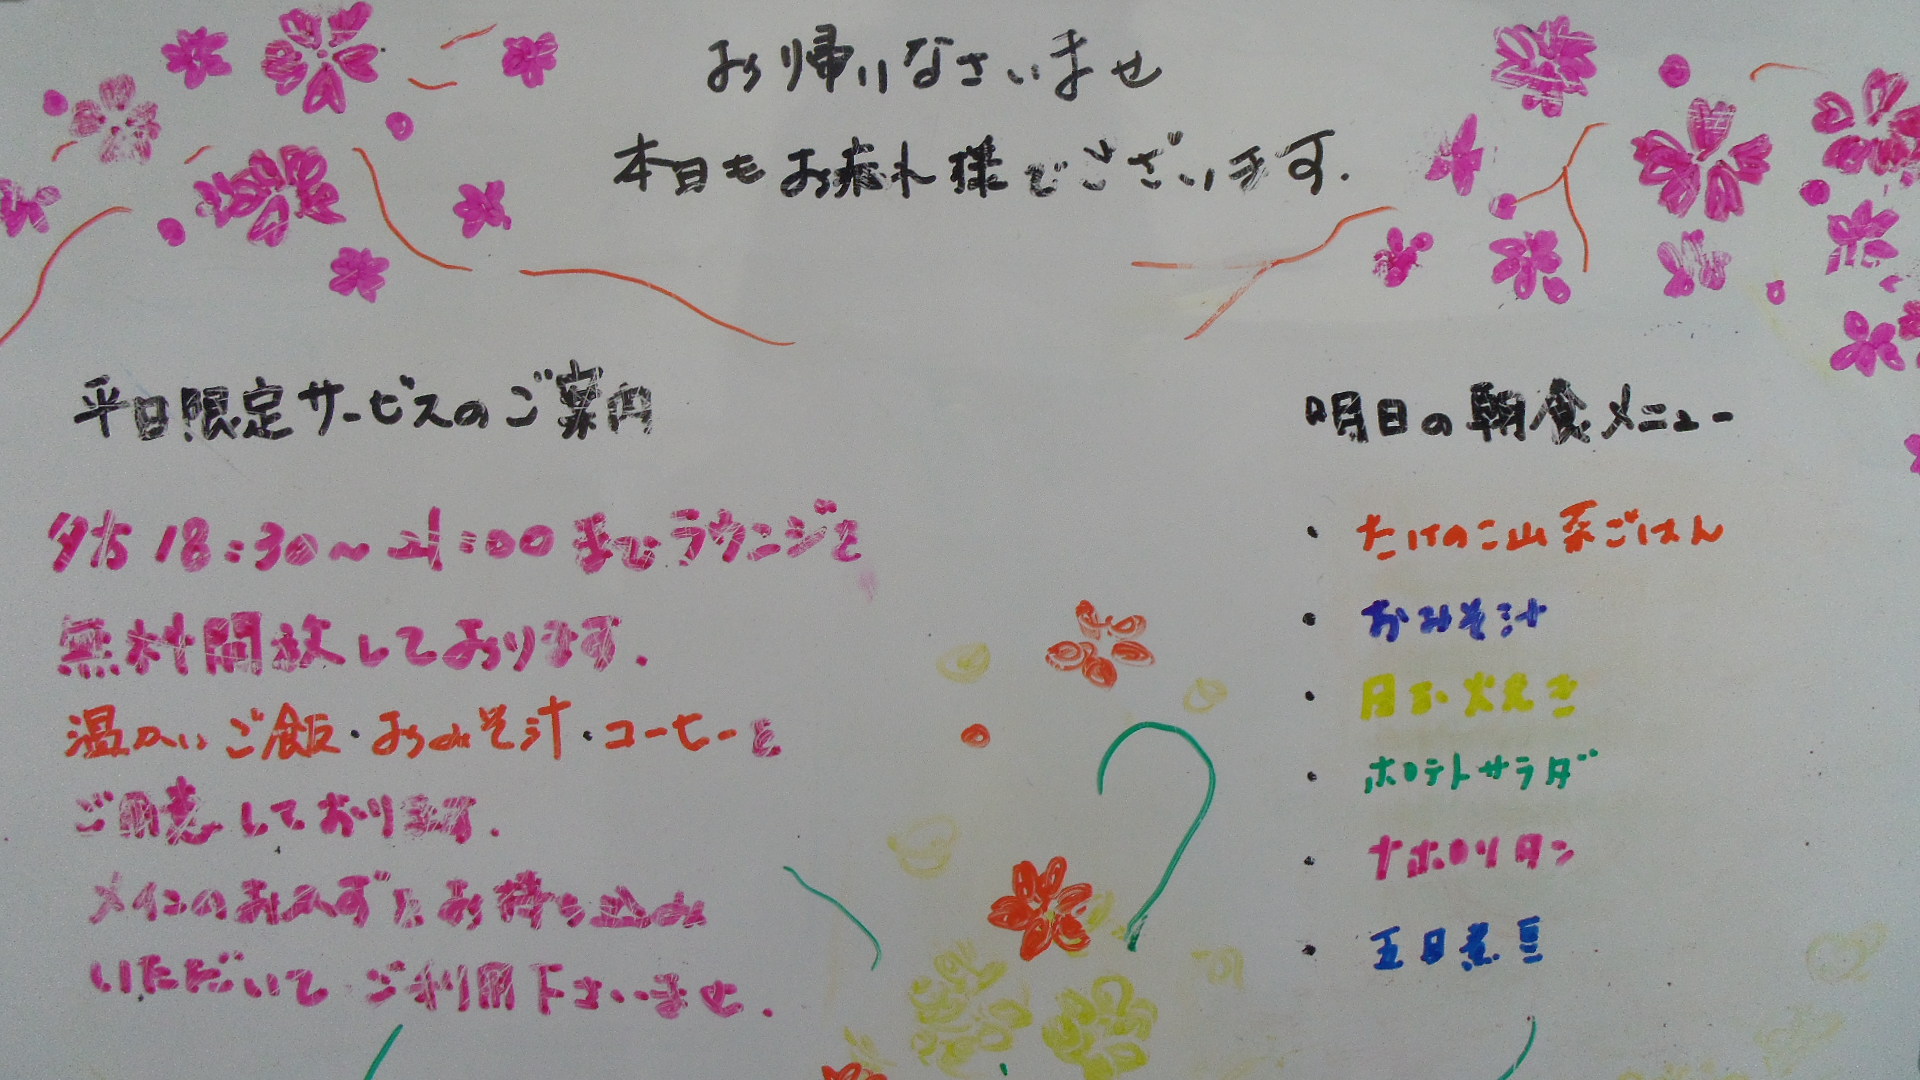 お帰りなさいませ
本日もお疲れ様でございます.
平日限定サービスのご案内
夕方 18:30〜21:00 までラウンジを
無料開放しております.
温かいご飯・おみそ汁・コーヒーを
ご用意しております.
メインのおかずをお持ち込み
いただいて ご利用下さいませ.
明日の朝食メニュー
・ たけのこ山菜ごはん
・ おみそ汁
・ 玉子焼き
・ ポテトサラダ
・ ナポリタン
・ 五目煮豆